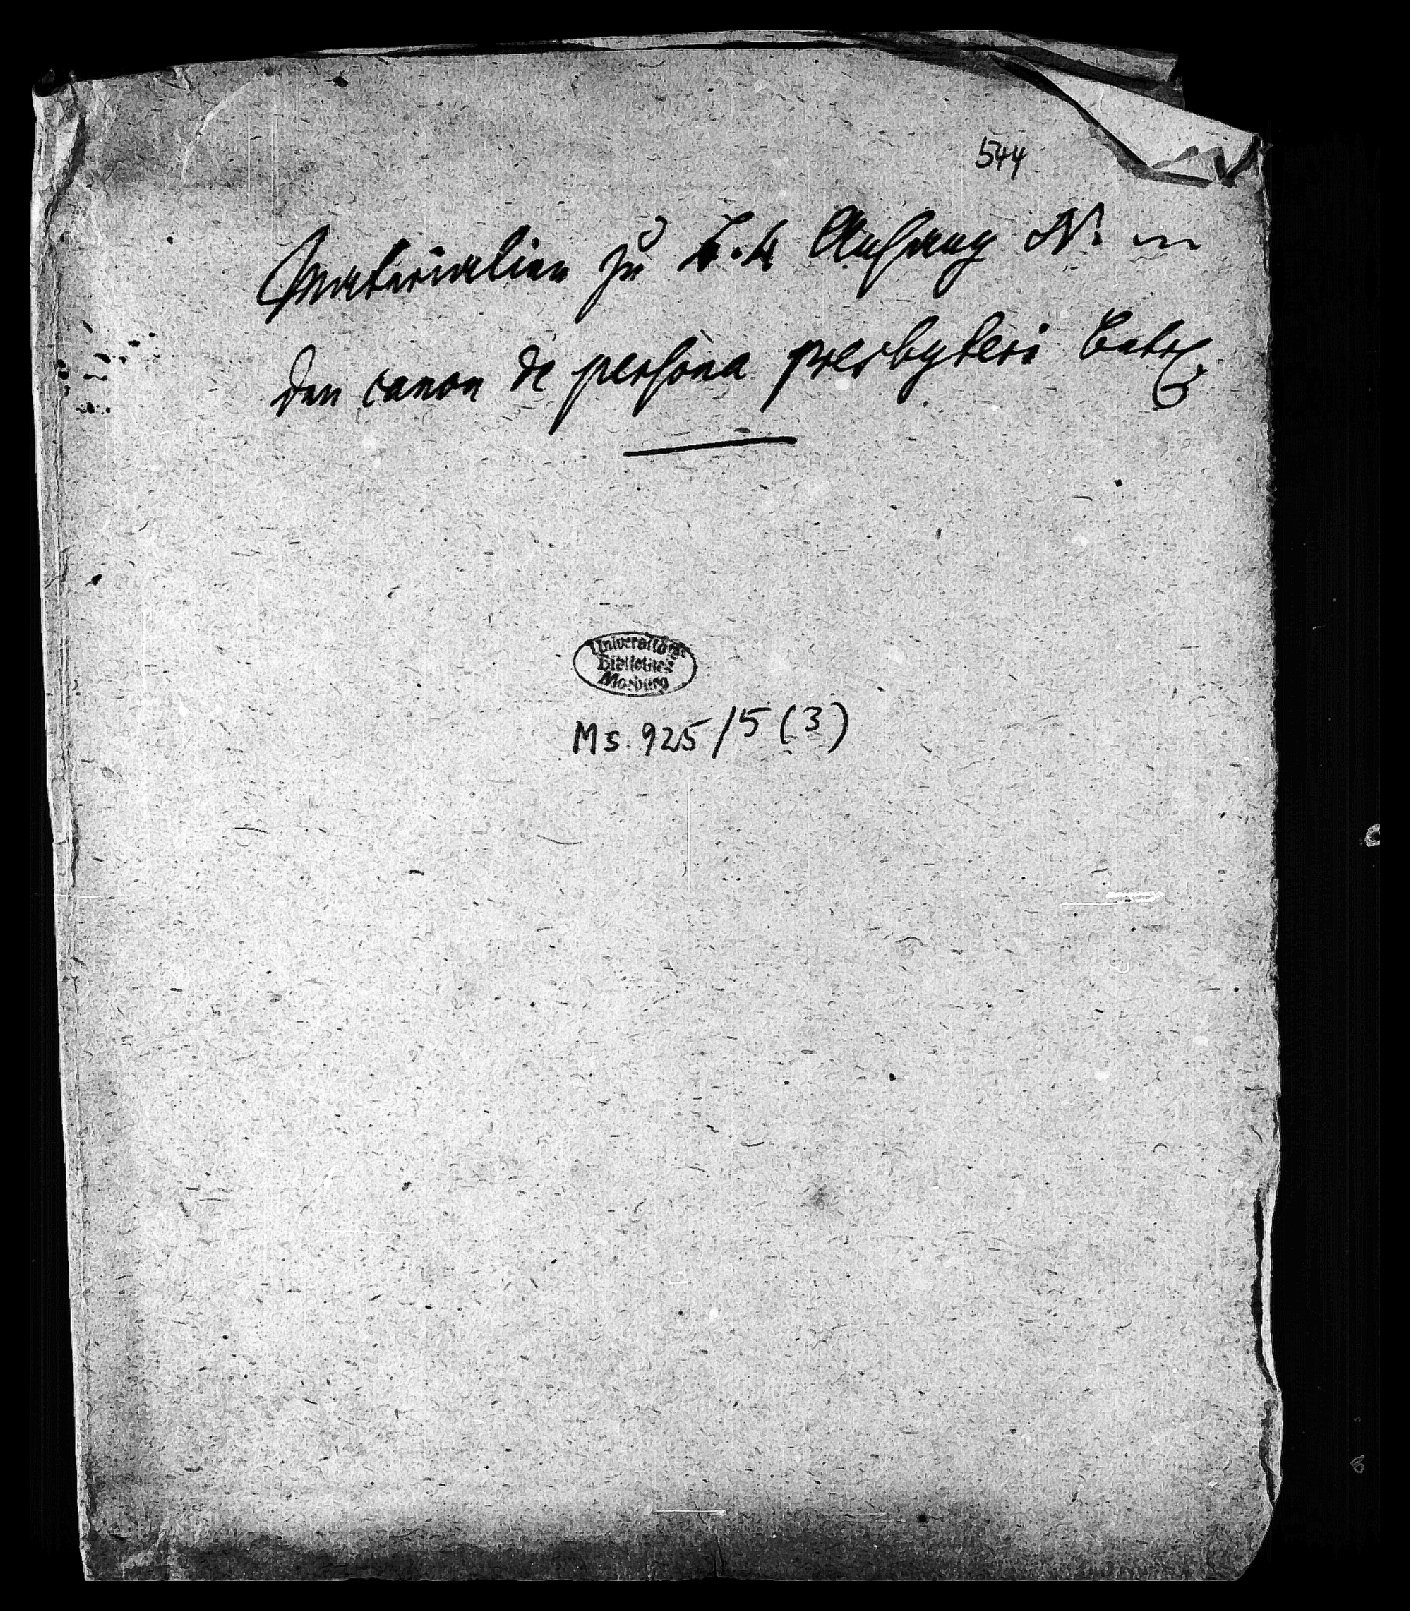 544
Materialien zu Anhang N.
den canon de persona presbyteri betr
Universitäts
Bibliothek
Marburg
Ms. 925/5 (3)